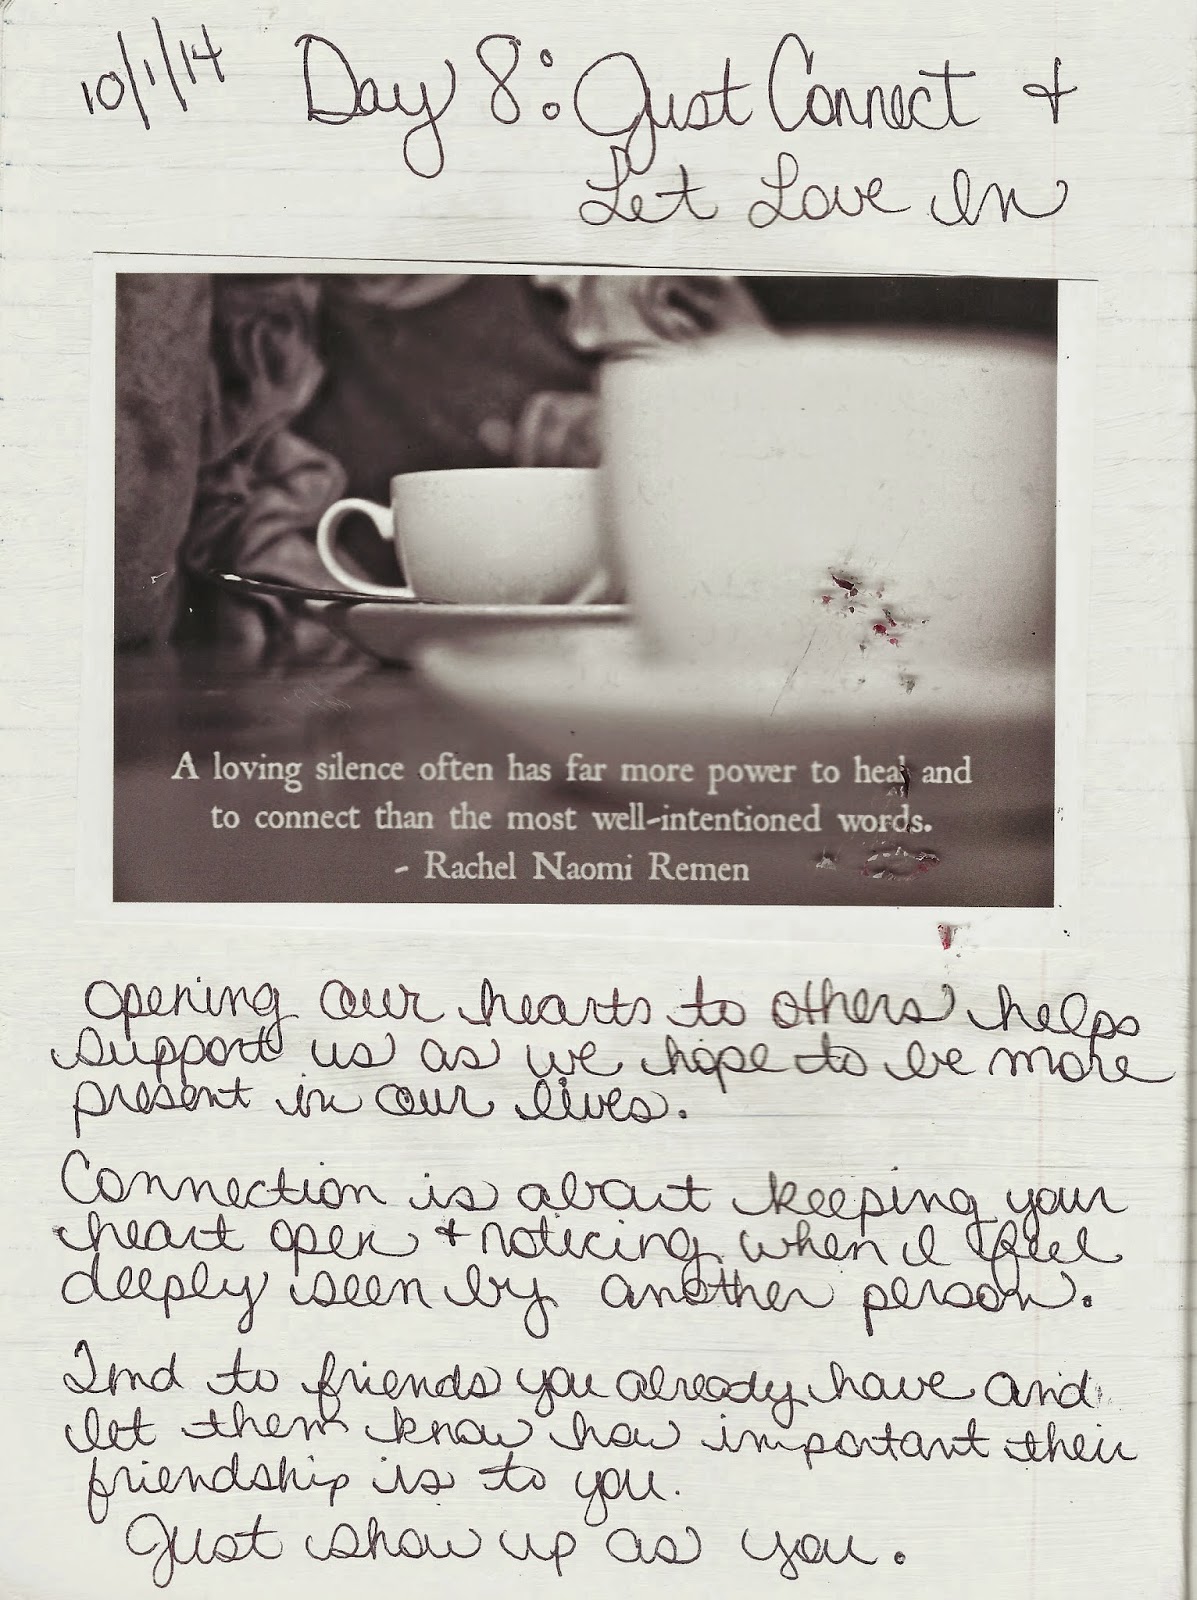 10/1/14 Day 8: Just Connect +
Let Love In
A loving silence often has far more power to heal and
to connect than the most well-intentioned words.
- Rachel Naomi Remen
opening our hearts to others helps
support us as we hope to be more
present in our lives.
Connection is about keeping your
heart open + noticing when I feel
deeply seen by another person.
Tend to friends you already have and
let them know how important their
friendship is to you.
Just show up as you.